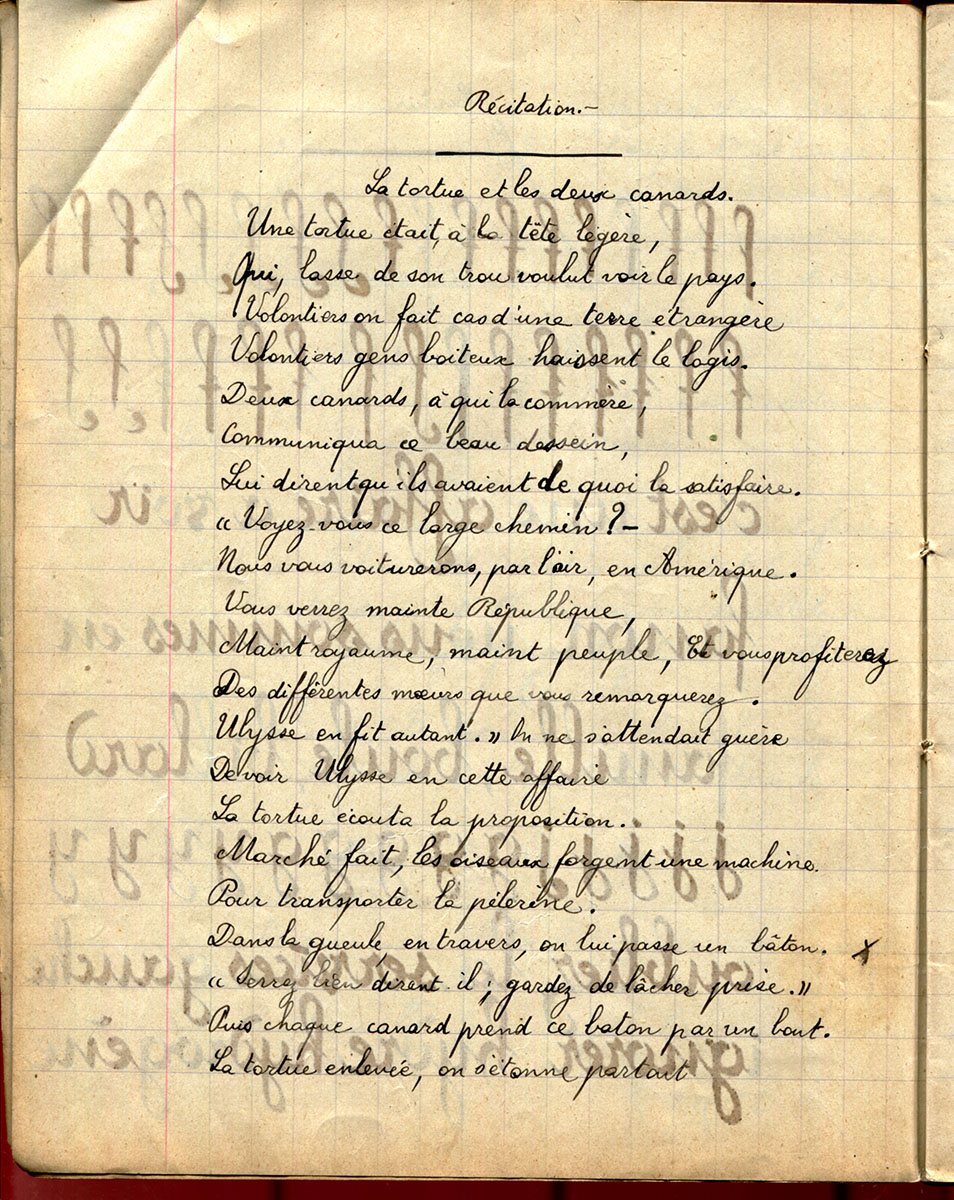 Récitation.-
La tortue et les deux canards.
Une tortue était, à la tête légère,
Qui, lasse de son trou voulut voir le pays.
Volontiers on fait cas d'une terre étrangère
Volontiers gens boiteux haïssent le logis.
Deux canards, à qui la commère,
Communiqua ce beau dessein,
Lui dirent qu'ils avaient de quoi la satisfaire.
« Voyez-vous ce large chemin ? -
Nous vous voiturerons, par l'air, en Amérique.
Vous verrez mainte République,
Maint royaume, maint peuple, Et vous profiterez
Des différentes mœurs que vous remarquerez.
Ulysse en fit autant. » On ne s'attendait guère
De voir Ulysse en cette affaire
La tortue écouta la proposition.
Marché fait, les oiseaux forgent une machine.
Pour transporter la pélerine.
Dans la gueule, en travers, on lui passe un bâton. x
« Serrez bien dirent-il ; gardez de lâcher prise. »
Puis chaque canard prend ce baton par un bout.
La tortue enlevée, on s'étonne partout